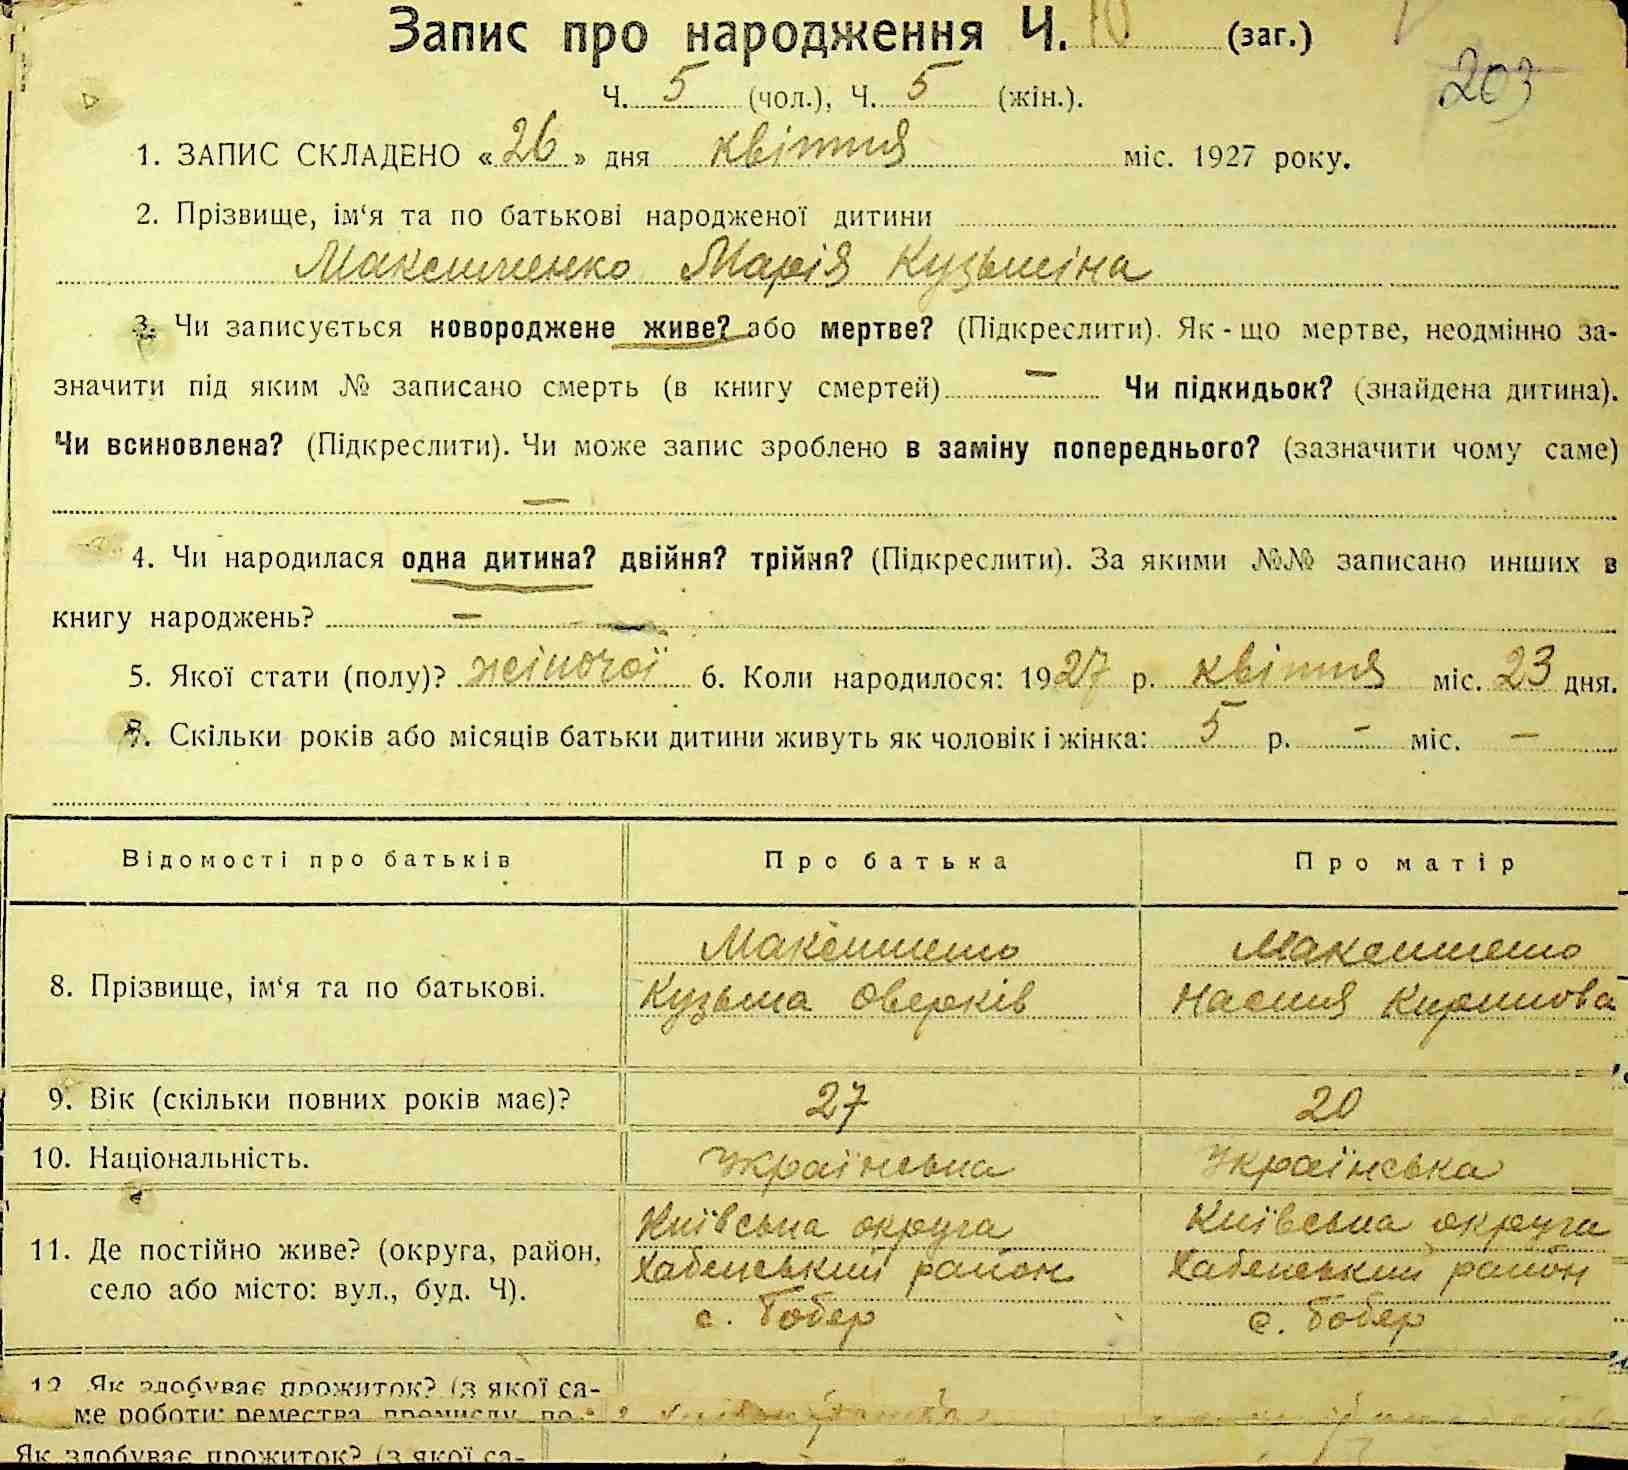 Запис про народження Ч. 10 (заг.)
203
Ч. 5 (чол.), Ч. 5 (жін.).
1. ЗАПИС СКЛАДЕНО «26» дня квітня міс. 1927 року.
2. Прізвище, ім‘я та по батькові народженої дитини
Максименко Марія Кузьміна
3. Чи записується новороджене живе? або мертве? (Підкреслити). Як-що мертве, неодмінно за-
значити під яким № записано смерть (в книгу смертей) — Чи підкидьок? (знайдена дитина).
Чи всиновлена? (Підкреслити). Чи може запис зроблено в заміну попереднього? (зазначити чому саме)
—
4. Чи народилася одна дитина? двійня? трійня? (Підкреслити). За якими №№ записано инших в
книгу народжень? —
5. Якої стати (полу)? жіночої 6. Коли народилося: 1927 р. квітня міс. 23 дня.
7. Скільки років або місяців батьки дитини живуть як чоловік і жінка: 5 р. - міс. —
Відомості про батьків Про батька Про матір
Максименко Максименко
8. Прізвище, ім‘я та по батькові. Кузьма Оверків Настя Кирилова
9. Вік (скільки повних років має)? 27 20
10. Національність. Українська Українська
Київська округа Київська округа
11. Де постійно живе? (округа, район, Хабенський район Хабенський район
село або місто: вул., буд. Ч). с. Бобер с. Бобер
12. Як здобуває прожиток? (з якої са-
ме роботи: ремества, промислу, по-
Як здобуває прожиток? (з якої са-